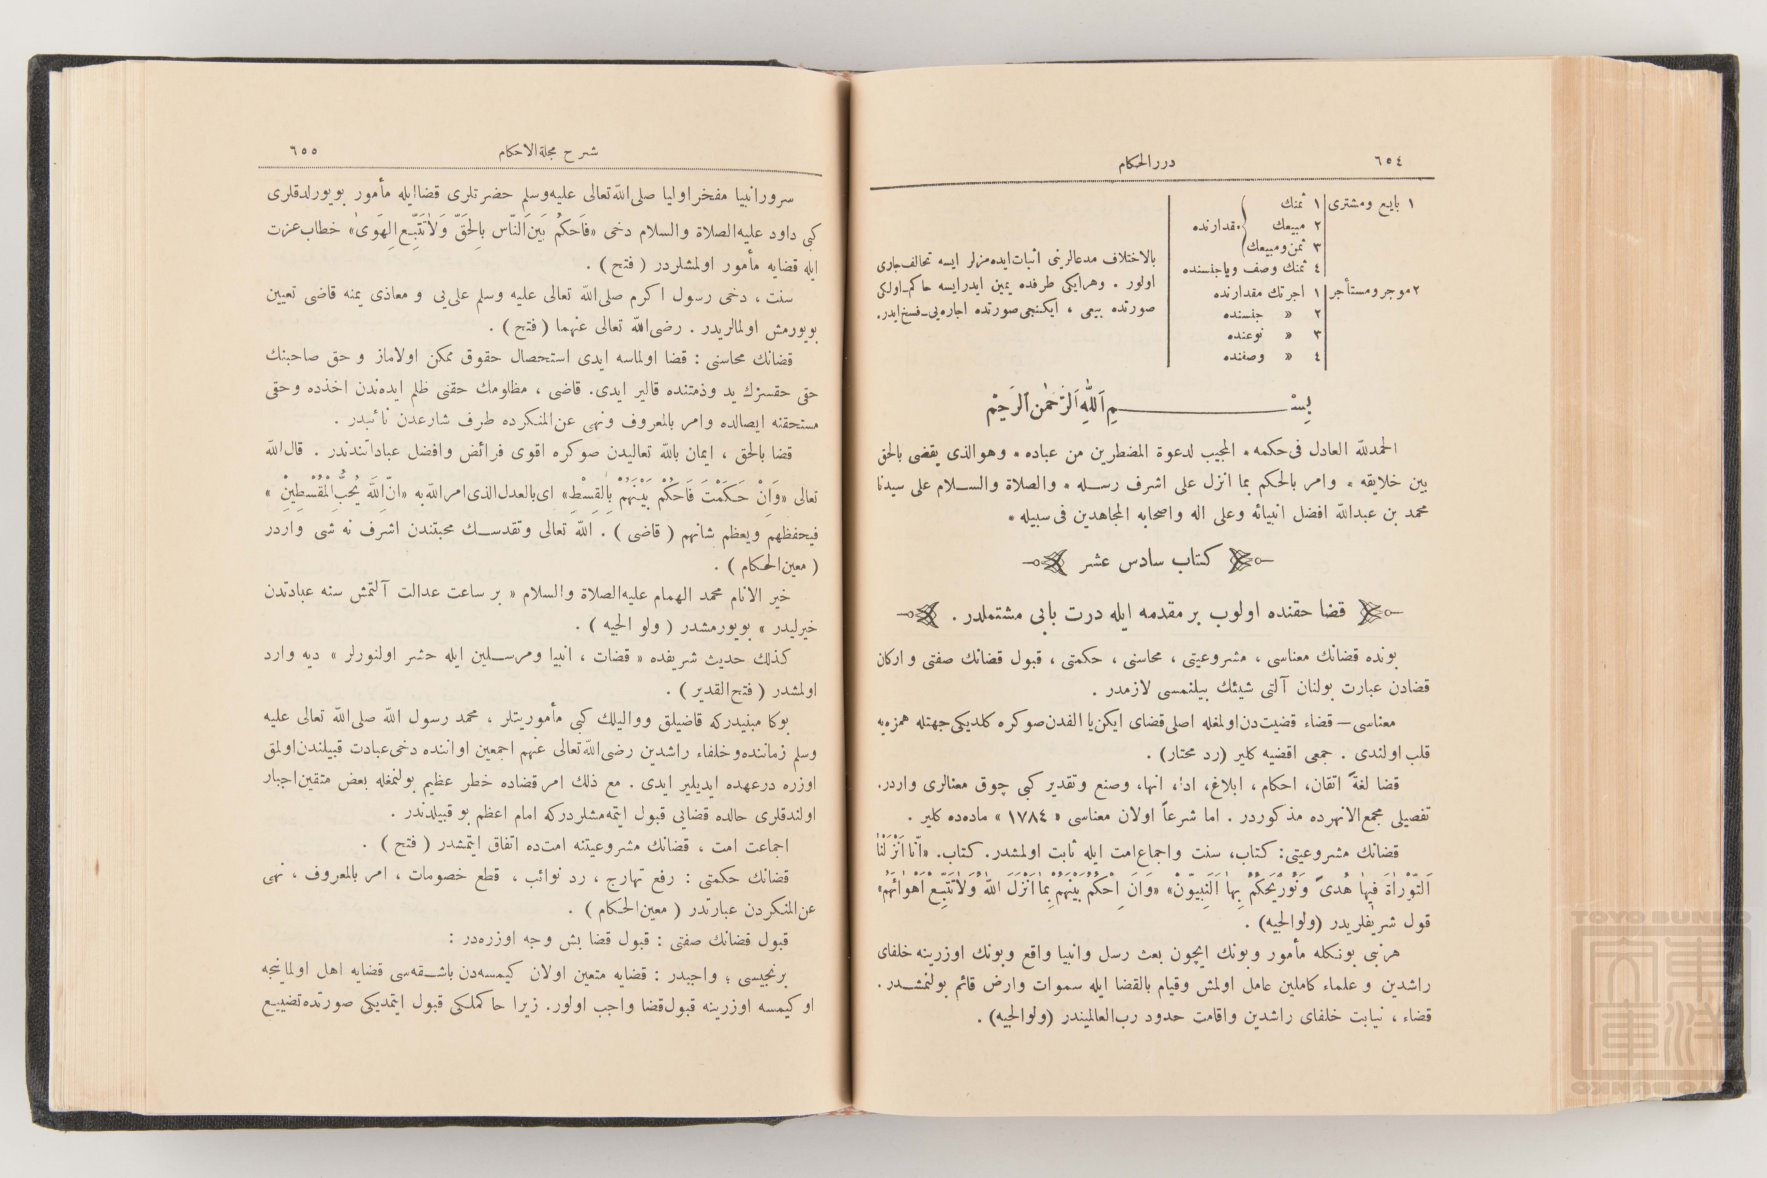 ٦٥٤
درر الحكام
١ بايع ومشترى
١ ثمنك
٢ مبيعك
٣ ثمن ومبيعك
مقدارنده
٤ ثمنك وصف وياجنسنده
٢ موجر ومستأجر
١ اجرتك مقدارنده
٢ « جنسنده
٣ « نوعنده
٤ « وصفنده
بالاختلاف مدعالرينى اثبات ايده‌مزلر ايسه تحالف جارى
اولور . وهرايكى طرفده يمين ايدرايسه حاكم اولكى
صورتده بيعى ، ايكنجى صورتده اجاره‌يى فسخ ايدر.
بِسْمِ اَللهِ اَلرَّحْمٰنِ اَلرَّحِيْمِ
الحمدلله العادل فى حكمه * المجيب لدعوة المضطرين من عباده * وهو الذى يقضى بالحق
بين خلايقه * وامر بالحكم بما انزل على اشرف رسله * والصلاة والسلام على سيدنا
محمد بن عبدالله افضل انبيائه وعلى اله واصحابه المجاهدين فى سبيله *
كتاب سادس عشر
قضا حقنده اولوب بر مقدمه ايله درت بابى مشتملدر .
بونده قضانك معناسى ، مشروعيتى ، محاسنى ، حكمتى ، قبول قضانك صفتى واركان
قضادن عبارت بولنان آلتى شيئك بيلنمسى لازمدر .
معناسى — قضاء قضيت‌دن اولمغله اصلى قضاى ايكن يا الفدن صوكره كلديكى جهتله همزه‌يه
قلب اولندى . جمعى اقضيه كلير (رد محتار) .
قضا لغةً اتقان، احكام ، ابلاغ، ادا، انها، وصنع وتقدير كبى چوق معنالرى واردر.
تفصيلى مجمع‌الانهرده مذكوردر . اما شرعاً اولان معناسى « ١٧٨٤ » ماده‌ده كلير .
قضانك مشروعيتى: كتاب، سنت واجماع امت ايله ثابت اولمشدر. كتاب. «اِنَّا اَنْزَلْنَا
اَلتَّوْراةَ فِيهَا هُدىً وَنُورٌ يَحْكُمُ بِهَا اَلنَّبِيّونَ» «وَاَنِ احْكُمْ بَيْنَهُمْ بِمَا اَنْزَلَ اللهُ وَلاٰتَتَّبِعْ اَهْوَائَهُمْ»
قول شريفلريدر (ولوالجيه) .
هر نبى بونكله مأمور وبونك ايچون بعث رسل وانبيا واقع وبونك اوزرينه خلفاى
راشدين و علماء كاملين عامل اولمش وقيام بالقضا ايله سموات وارض قائم بولنمشدر .
قضاء ، نيابت خلفاى راشدين واقامت حدود رب‌العالميندر (ولوالجيه) .
شرح مجلة الاحكام
٦٥٥
سرور انبيا مفخر اوليا صلى‌الله تعالى عليه‌وسلم حضرتلرى قضاايله مأمور بويورلدقلرى
كبى داود عليه‌الصلاة والسلام دخى «فَاَحكُم بَينَ‌النَّاسِ بِالحَقِّ وَلاٰتَتَّبِعِ الهَوىٰ» خطاب عزت
ايله قضايه مأمور اولمشلردر ( فتح ) .
سنت ، دخى رسول اكرم صلى‌الله تعالى عليه وسلم على‌يى و معاذى يمنه قاضى تعيين
بويورمش اولمالريدر . رضى‌الله تعالى عنهما ( فتح ) .
قضانك محاسنى : قضا اولماسه ايدى استحصال حقوق ممكن اولاماز و حق صاحبنك
حقى حقسزك يد وذمتنده قالير ايدى. قاضى ، مظلومك حقنى ظلم ايده‌ندن اخذده وحقى
مستحقنه ايصالده وامر بالمعروف ونهى عن‌المنكرده طرف شارعدن نائبدر .
قضا بالحق ، ايمان بالله تعاليدن صوكره اقوى فرائض وافضل عباداتدندر . قال‌الله
تعالى «وَاِنْ حَكَمْتَ فَاحْكُمْ بَيْنَهُمْ بِالْقِسْطِ» اى بالعدل‌الذى امر الله به «اِنَّ‌اللهَ يُحِبُّ‌الْمُقْسِطِيْنَ »
فيحفظهم ويعظم شانهم ( قاضى ) . الله تعالى وتقدسك محبتندن اشرف نه شى واردر
( معين‌الحكام ) .
خير الانام محمد الهمام عليه‌الصلاة والسلام « بر ساعت عدالت آلتمش سنه عبادتدن
خيرليدر » بويورمشدر ( ولو الجيه ) .
كذلك حديث شريفده « قضات ، انبيا ومرسلين ايله حشر اولنورلر » ديه وارد
اولمشدر ( فتح‌القدير ) .
بوكا مبنيدركه قاضيلق وواليلك كبى مأموريتلر ، محمد رسول الله صلى‌الله تعالى عليه
وسلم زماننده وخلفاء راشدين رضى‌الله تعالى عنهم اجمعين اواننده دخى عبادت قبيلندن اولمق
اوزره درعهده ايديلير ايدى . مع ذلك امر قضاده خطر عظيم بولنمغله بعض متقين اجبار
اولندقلرى حالده قضايى قبول ايتمه‌مشلردركه امام اعظم بو قبيلدندر .
اجماعت امت ، قضانك مشروعيتنه امت‌ده اتفاق ايتمشدر ( فتح ) .
قضانك حكمتى : رفع تهارج ، رد نوائب ، قطع خصومات ، امر بالمعروف ، نهى
عن‌المنكردن عبارتدر ( معين‌الحكام ) .
قبول قضانك صفتى : قبول قضا بش وجه اوزره‌در :
برنجيسى ؛ واجبدر : قضايه متعين اولان كيمسه‌دن باشقه‌سى قضايه اهل اولماينجه
او كيمسه اوزرينه قبول قضا واجب اولور. زيرا حاكملكى قبول ايتمديكى صورتده تضييع
TOYO BUNKO
東洋文庫
TOYO BUNKO